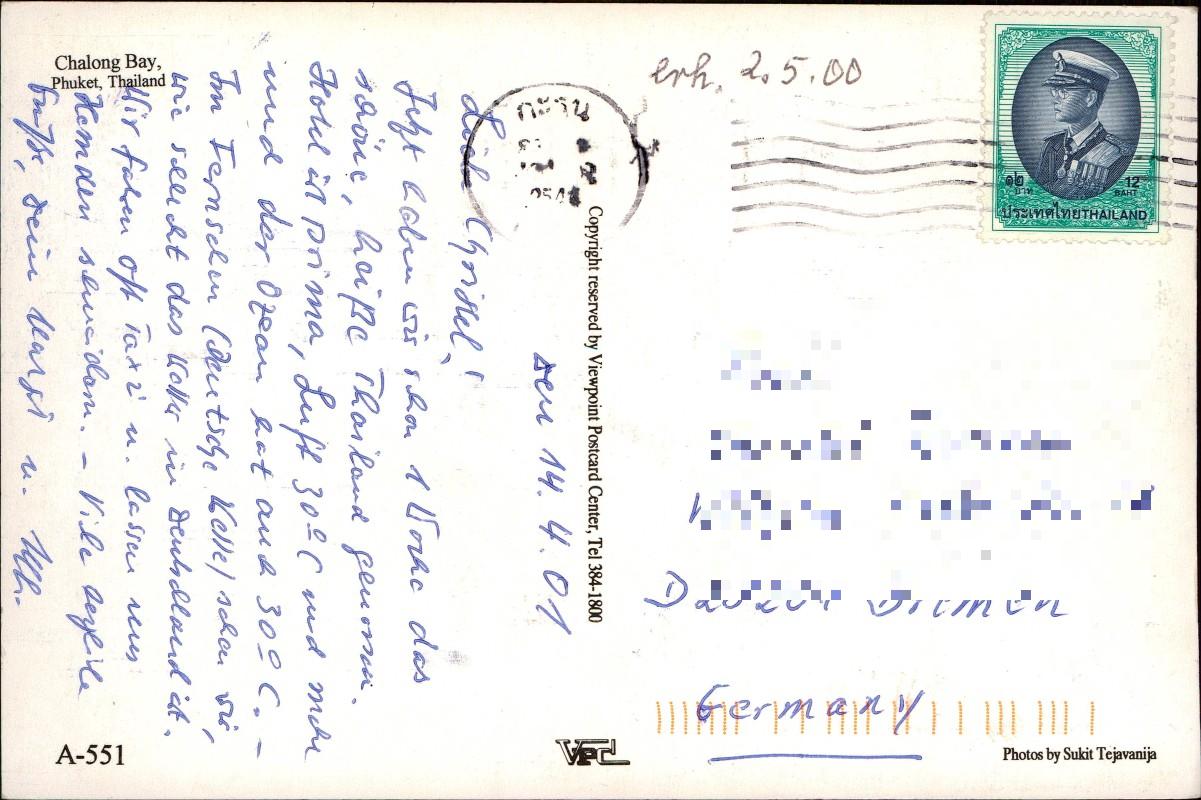 Chalong Bay,
Phuket, Thailand
Den 14. 4. 01
Liebe Christel!
Jetzt haben wir schon 1 Woche das
schöne, heiße Thailand genossen.
Hotel ist prima, Luft 30° C und mehr
und der Ozean hat auch 30° C. –
Im Fernsehen (Deutsche Welle) sehen wir,
wie schlecht das Wetter in Deutschland ist.
Wir fahren oft Taxi u. lassen uns
Hemden schneidern. – Viele herzliche
Grüße, Deine Margi u.
A-551
Copyright reserved by Viewpoint Postcard Center, Tel 384-1800
VPC
erh. 2.5.00
กะรน
254
๑๒
บาท
12
BAHT
ประเทศไทย THAILAND
Bremen
Germany
Photos by Sukit Tejavanija